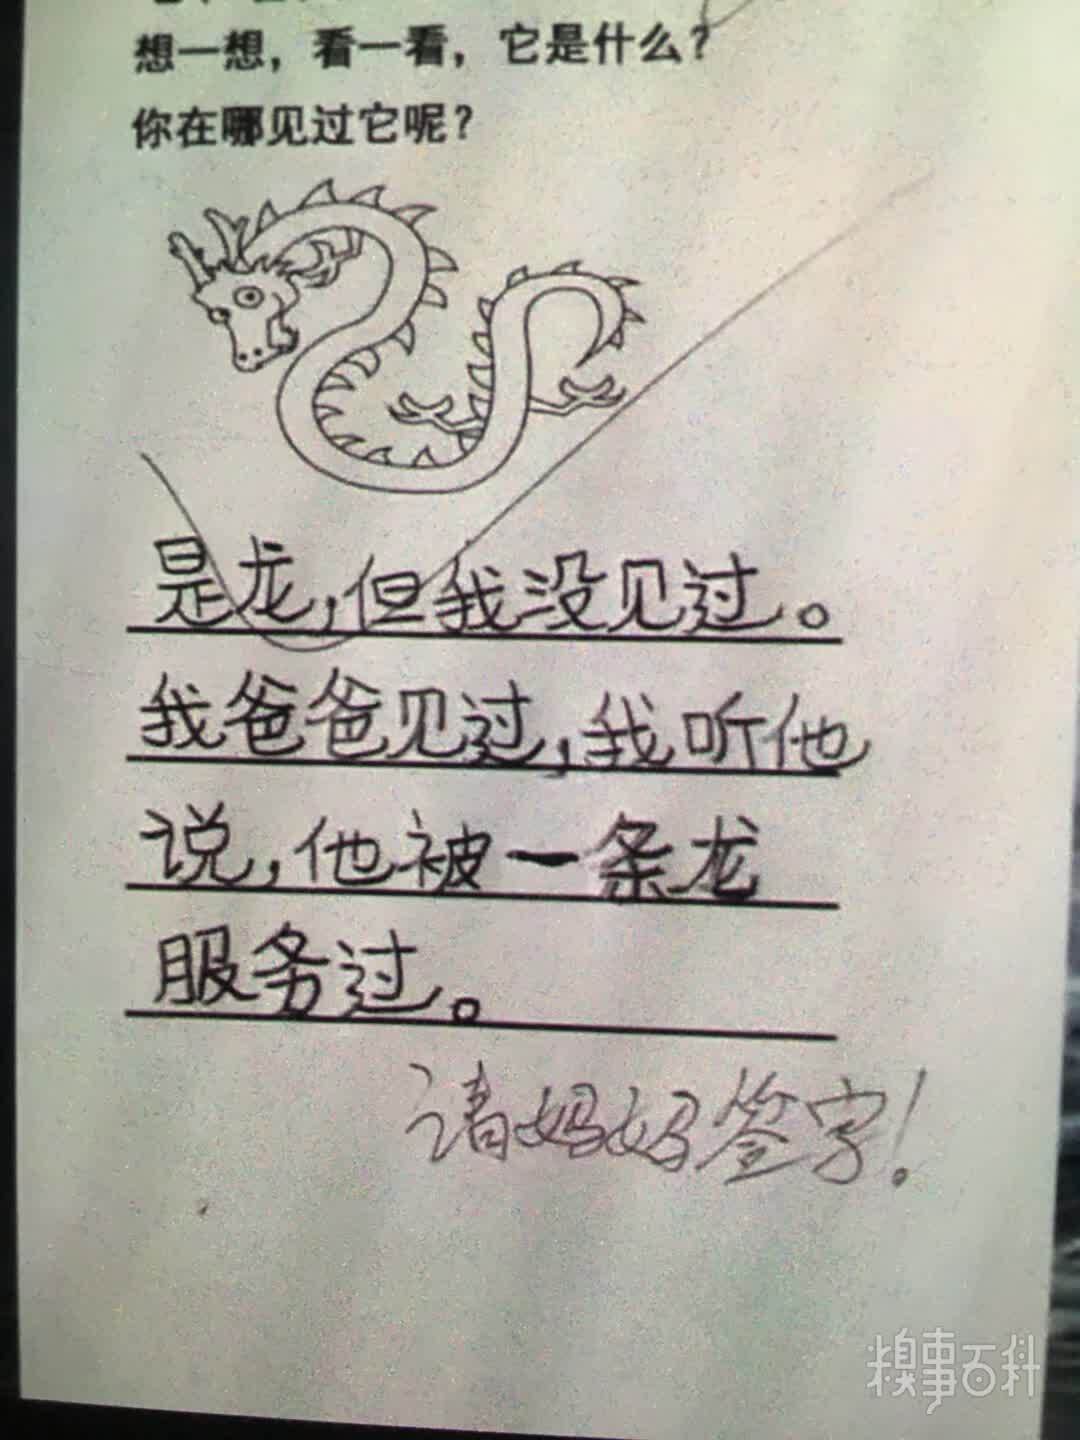 想一想，看一看，它是什么？
你在哪见过它呢？
是龙，但我没见过。
我爸爸见过，我听他
说，他被一条龙
服务过。
请妈妈签字！
糗事百科